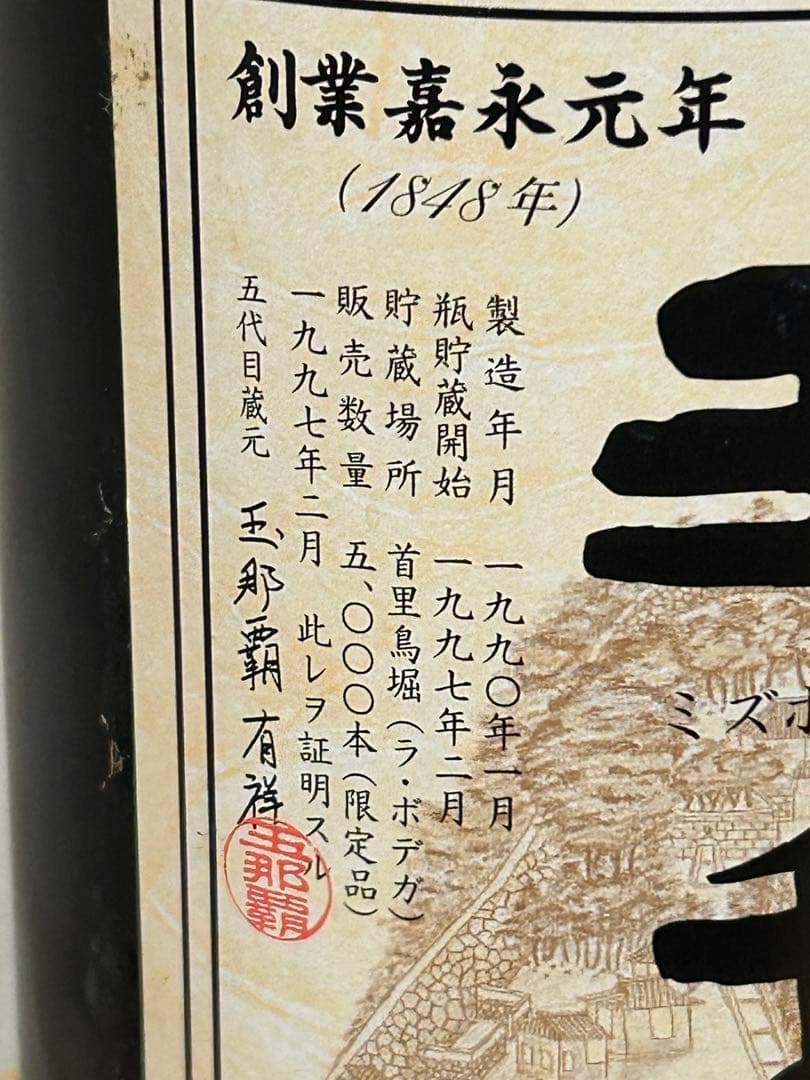 創業嘉永元年
(1848年)
製造年月 一九九〇年一月
瓶貯蔵開始 一九九七年二月
貯蔵場所 首里鳥堀(ラ・ボデガ)
販売数量 五、〇〇〇本(限定品)
一九九七年二月 此レヲ証明スル
五代目蔵元 玉那覇有祥
玉那覇
ミズホ